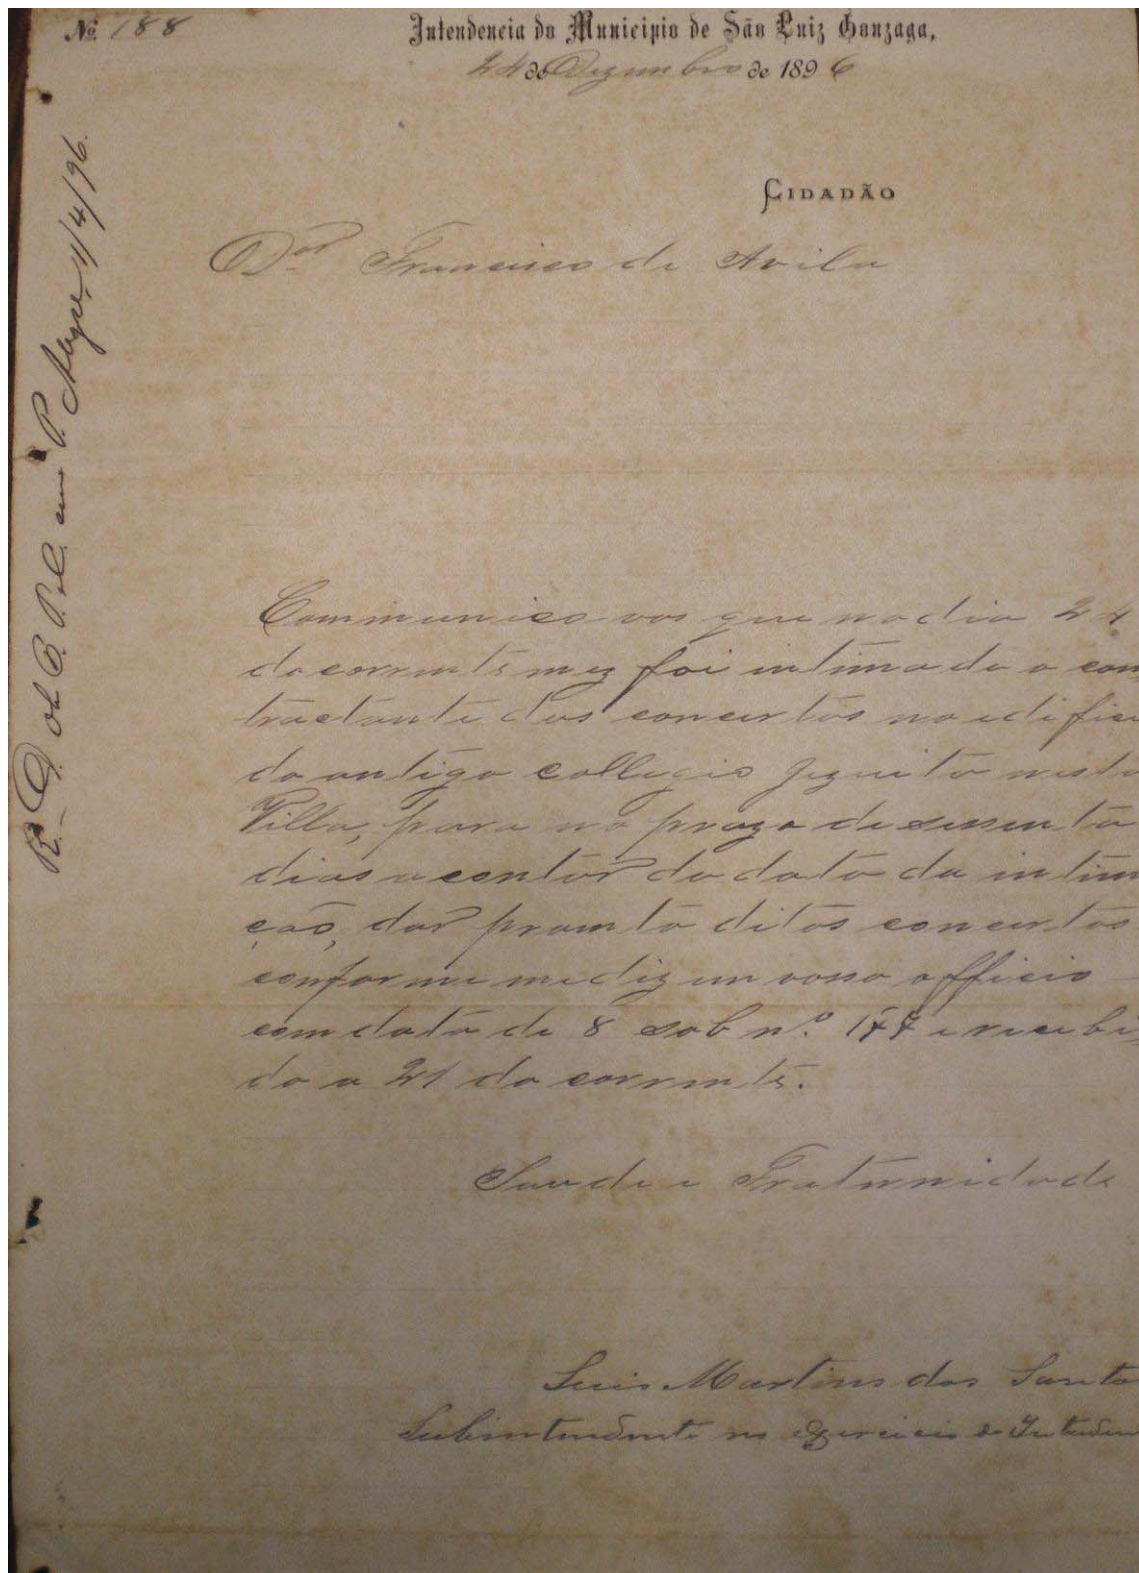 Nº 188
Intendencia do Municipio de São Luiz Gonzaga,
24 de Dezembro de 1896
CIDADÃO
Dor Francisco de Avila
Communico vos que no dia 24
do corrente mez foi intimado o con
tractante dos concertos no edifici
do antigo collegio Jezuita nesta
Villa, para no prazo de sessenta
dias a contar da data da intim
ção, dar prompto ditos concertos
conforme me diz em vosso officio
com data de 8 sob n.º 177 e recebi
do a 21 do corrente.
Saude e Fraternidade
Luis Martins dos Santo
Subintendente no exercicio de Intenden
R. D. ob. P. em P. Alegre, 1/4/96.